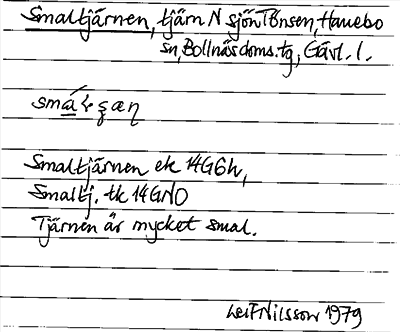 Smaltjärnen, tjärn N sjön Tönsen, Hanebo
sn, Bollnäs doms. tg, Gävl. l.
Smaltjärnen ek 14G6h,
Smaltj. tk 14GNO
Tjärnen är mycket smal.
Leif Nilsson 1979